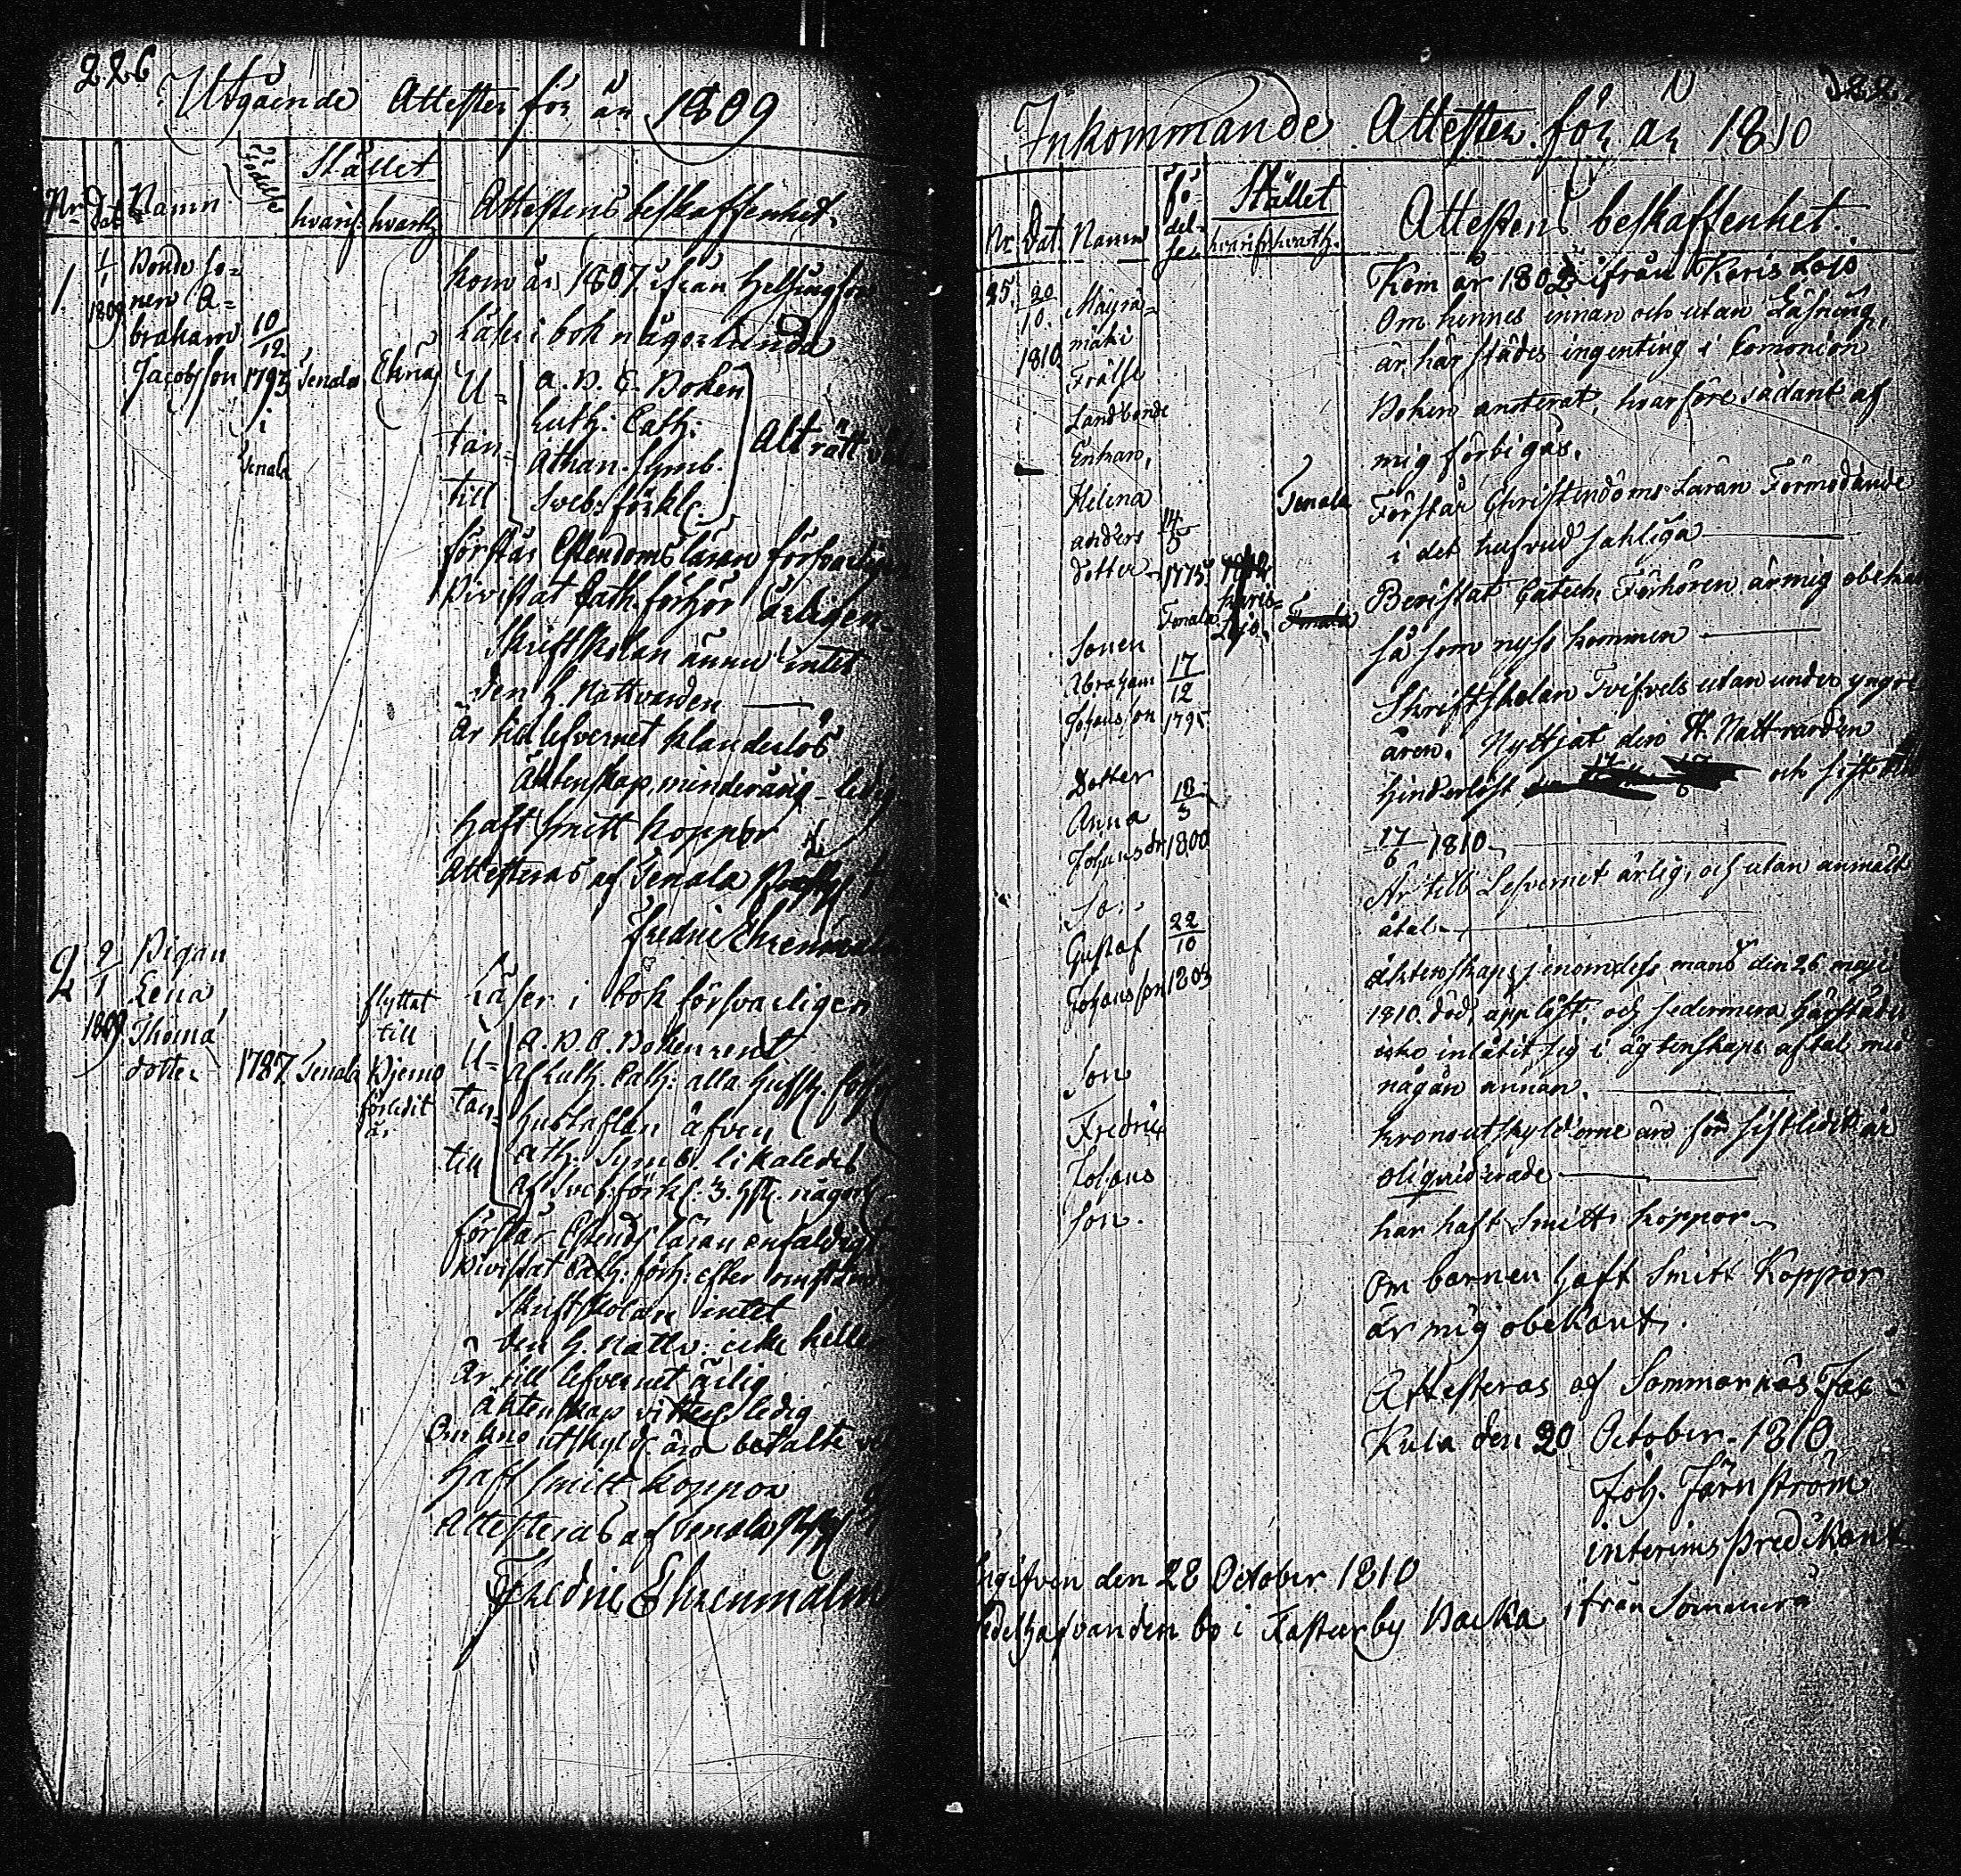 226
Utgående Attester för år 1809
Nr
Dat
Namn
Födelse
Stället
hvarifr.
hvarth.
Attestens beskaffenhet.
1.
1/1
1809
Bonde so-
nen A-
braham
Jacobsson
10/12
1793
i
Tenala
Tenala
Eknäs
kom år 1807 ifrån Helsingfors
Läser i bok någorlunda
U-
tan-
till
A. B. C. Boken
Luth. Cath:
Athan. Symb.
Sveb. förkl.
Alt rätt väl
förstår Chrendoms läran försvarligen
Bivistat Cath. förhör årligen
Skriftskolan ännu intet
den H. Nattvarden
Är till lefvernet klanderlös
Äktenskap, minderårig - ledig
haft smitt koppor
Attesteras af Tenala
Fredric Ehrenmalm
2
2/1
1809
Pigan
Lena
Thoma
dotter
1787
Tenala
flyttat
till
Bjerno
förledit
år
Läser i bok försvarligen
U-
tan-
till
A. B. C. Boken rent
af Luth. Cath: alla hufst.
Hustaflan äfven
Ath. Symb. likaledes
af Sveb. förkl. 3. någorl
förstår Chrends läran enfaldigt
Bivistat Cath: förh: efter omständ
Skriftskolan intet
den H. Nattv: icke heller
Är till lefvernet ärlig
Äktenskap ledig
Om utskyld. äro betalte
haft smitt koppor
Attesteras af Tenala
Fredric Ehrenmalm
Inkommande Attester för år 1810
Nr.
Dat.
Namn
fö
del-
se
Stället
hvarifr.
hvarth.
Attestens beskaffenhet.
25.
20/10
1810
Mäyrä-
mäki
Frälse
Landbonde
Enkan,
Helena
Anders
dotter
14/5
1775
Tenala
Karis-
Lojo.
Tenala
Tenala
Sonen
Abraham
Johansson
17/12
1795
Dotter
Anna
Johansdr
18/3
1800
So:
Gustaf
Johansson
22/10
1803
Son
Fredric
Johans
son.
Kom år 1802 ifrån Karis Lojo
Om hennes innan och utan Läsning,
är här städes ingenting i Comonion
Boken anoterat, hvarföre sådant af
mig förbigås.
Förstår Christendoms Läran Förmodande
i det hufvud sakliga
Bevistat Catech. Förhören är mig obekant
så som nyss kommen
Skriftskolan Tvifvels utan under yngre
åren. Nyttjat den H. Nattvarden
hinderlöst och sist
17/6 1810
Är till Lefvernet ärlig, och utan anmält
åtal
äktenskap, jenom dess mans den 26 maji
1810. död, upplöst, och sedermera härstädes
icke inlåtit sig i ägtenskaps aftal med
någån annan.
Kronoutskylderne äro för sistledit år
oliquiderade
har haft smitt koppor
Om barnen haft Smitt Koppor
är mig obekant.
Attesteras af Sommarnäs Jac
Kula den 20 October 1810
Joh. Järnström
interims predikant
Ingifven den 28 October 1810
edelhafvanden bo i Fasterby Backa ifrån Sommarnäs